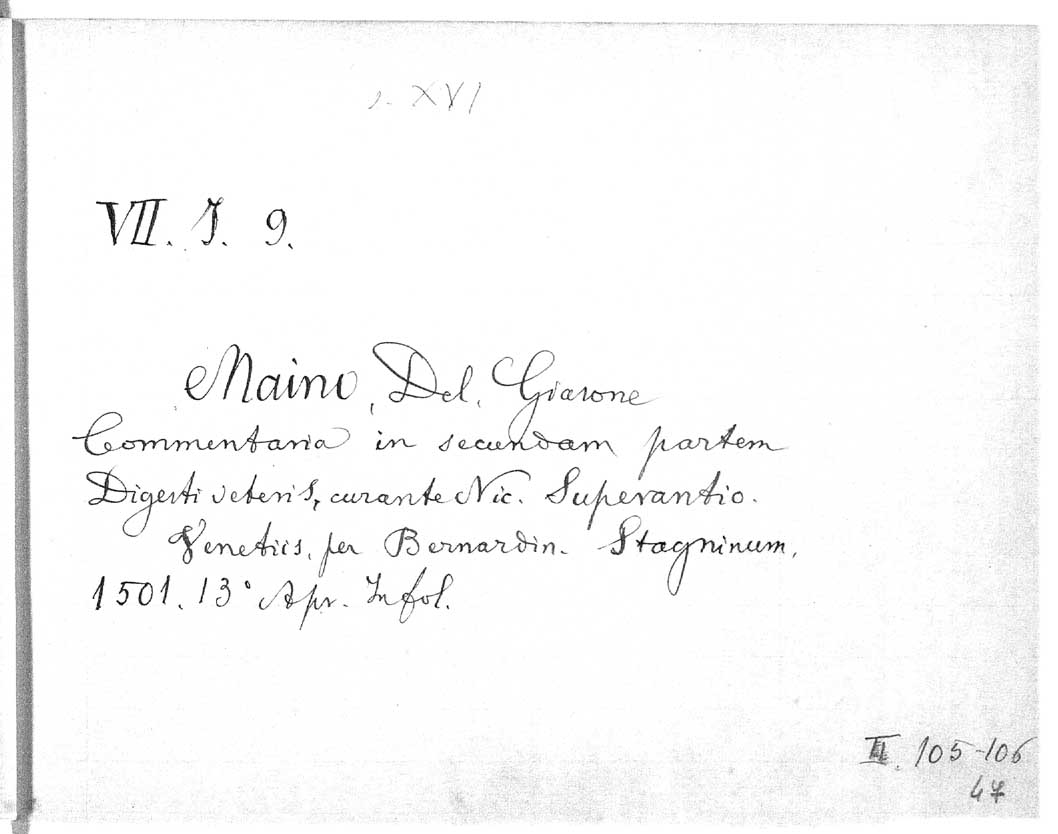 s. XVI
VII. J. 9.
Maino, Del, Giasone
Commentaria in secundam partem
Digesti veteris, curante Nic. Superantio.
Venetiis, per Bernardin. Stagninum,
1501. 13° Apr. In fol.
II. 105-106
47